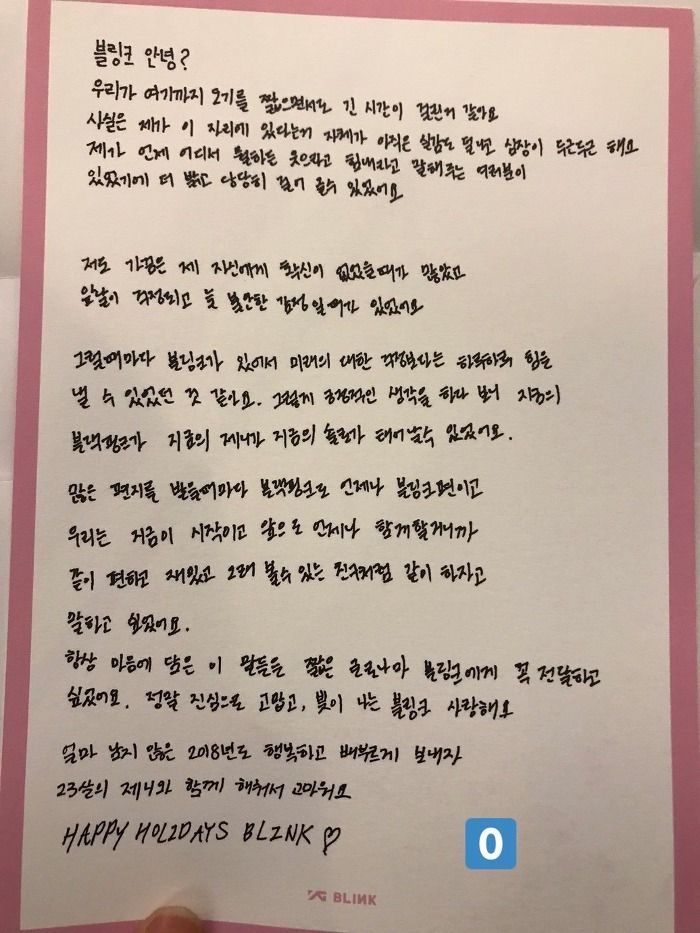 블링크 안녕?
우리가 여기까지 오기를 짧으면서도 긴 시간이 걸린거 같아요
사실은 제가 이 자리에 있다는거 자체가 아직은 실감도 덜나고 심장이 두근두근 해요
제가 언제 어디서 뭘하든 웃으라고 힘내라고 말해주는 여러분이
있었기에 더 밝고 당당히 걸어 올수 있었어요
저도 가끔은 제 자신에게 확신이 없었을때가 많았고
앞날이 걱정되고 늘 불안한 감정일때가 있었어요
그럴때마다 블링크가 있어서 미래의 대한 걱정보다는 하루하루 힘을
낼 수 있었던 것 같아요. 그렇게 긍정적인 생각을 하다 보니 지금의
블랙핑크가 지금의 제니가 지금의 솔로가 태어날수 있었어요.
많은 편지를 받을때마다 블랙핑크도 언제나 블링크편이고
우리는 지금이 시작이고 앞으로 언제나 함께할거니까
같이 편하고 재밌고 오래 볼수 있는 친구처럼 같이 하자고
말하고 싶었어요.
항상 마음에 담은 이 말들을 짧은 글로나마 블링크에게 꼭 전달하고
싶었어요. 정말 진심으로 고맙고, 빛이 나는 블링크 사랑해요
얼마 남지 않은 2018년도 행복하고 배부르게 보내자
23살의 제니와 함께 해줘서 고마워요
HAPPY HOLIDAYS BLINK ♡
0
YG BLINK